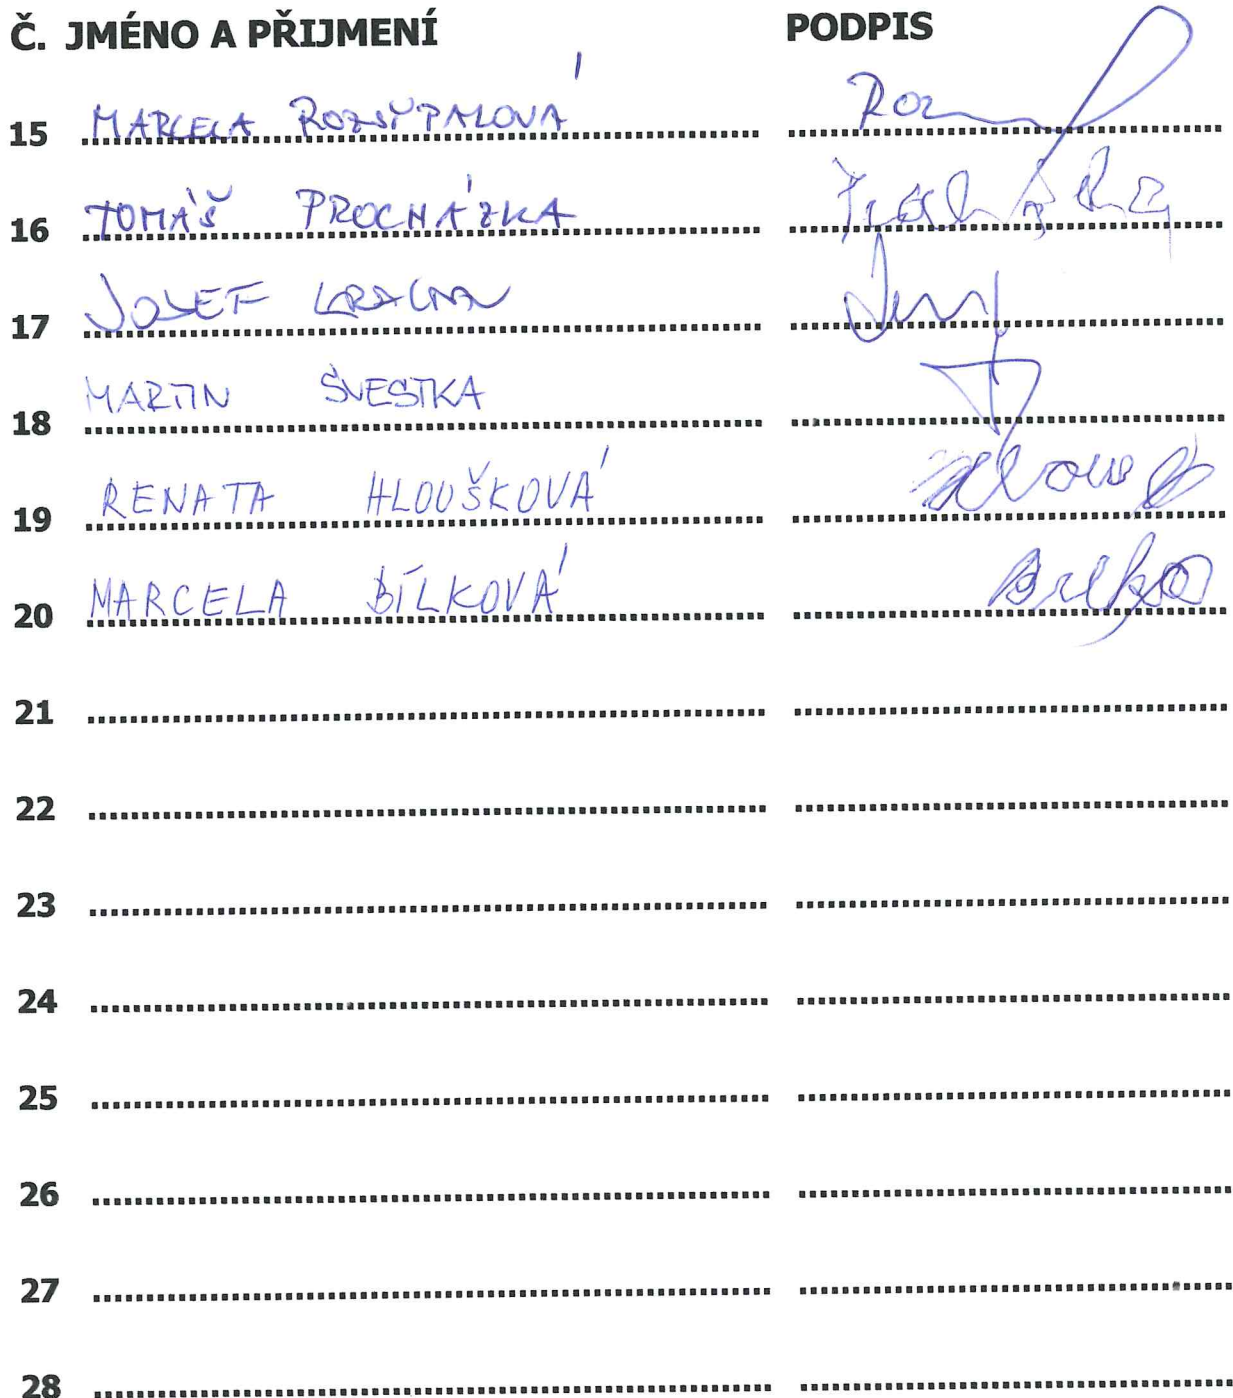 Č. JMÉNO A PŘIJMENÍ PODPIS
15 MARCELA ROZSÝPALOVÁ
16 TOMÁŠ PROCHÁZKA
17 JOSEF
18 MARTIN ŠVESTKA
19 RENATA HLOUŠKOVÁ
20 MARCELA BÍLKOVÁ
21
22
23
24
25
26
27
28